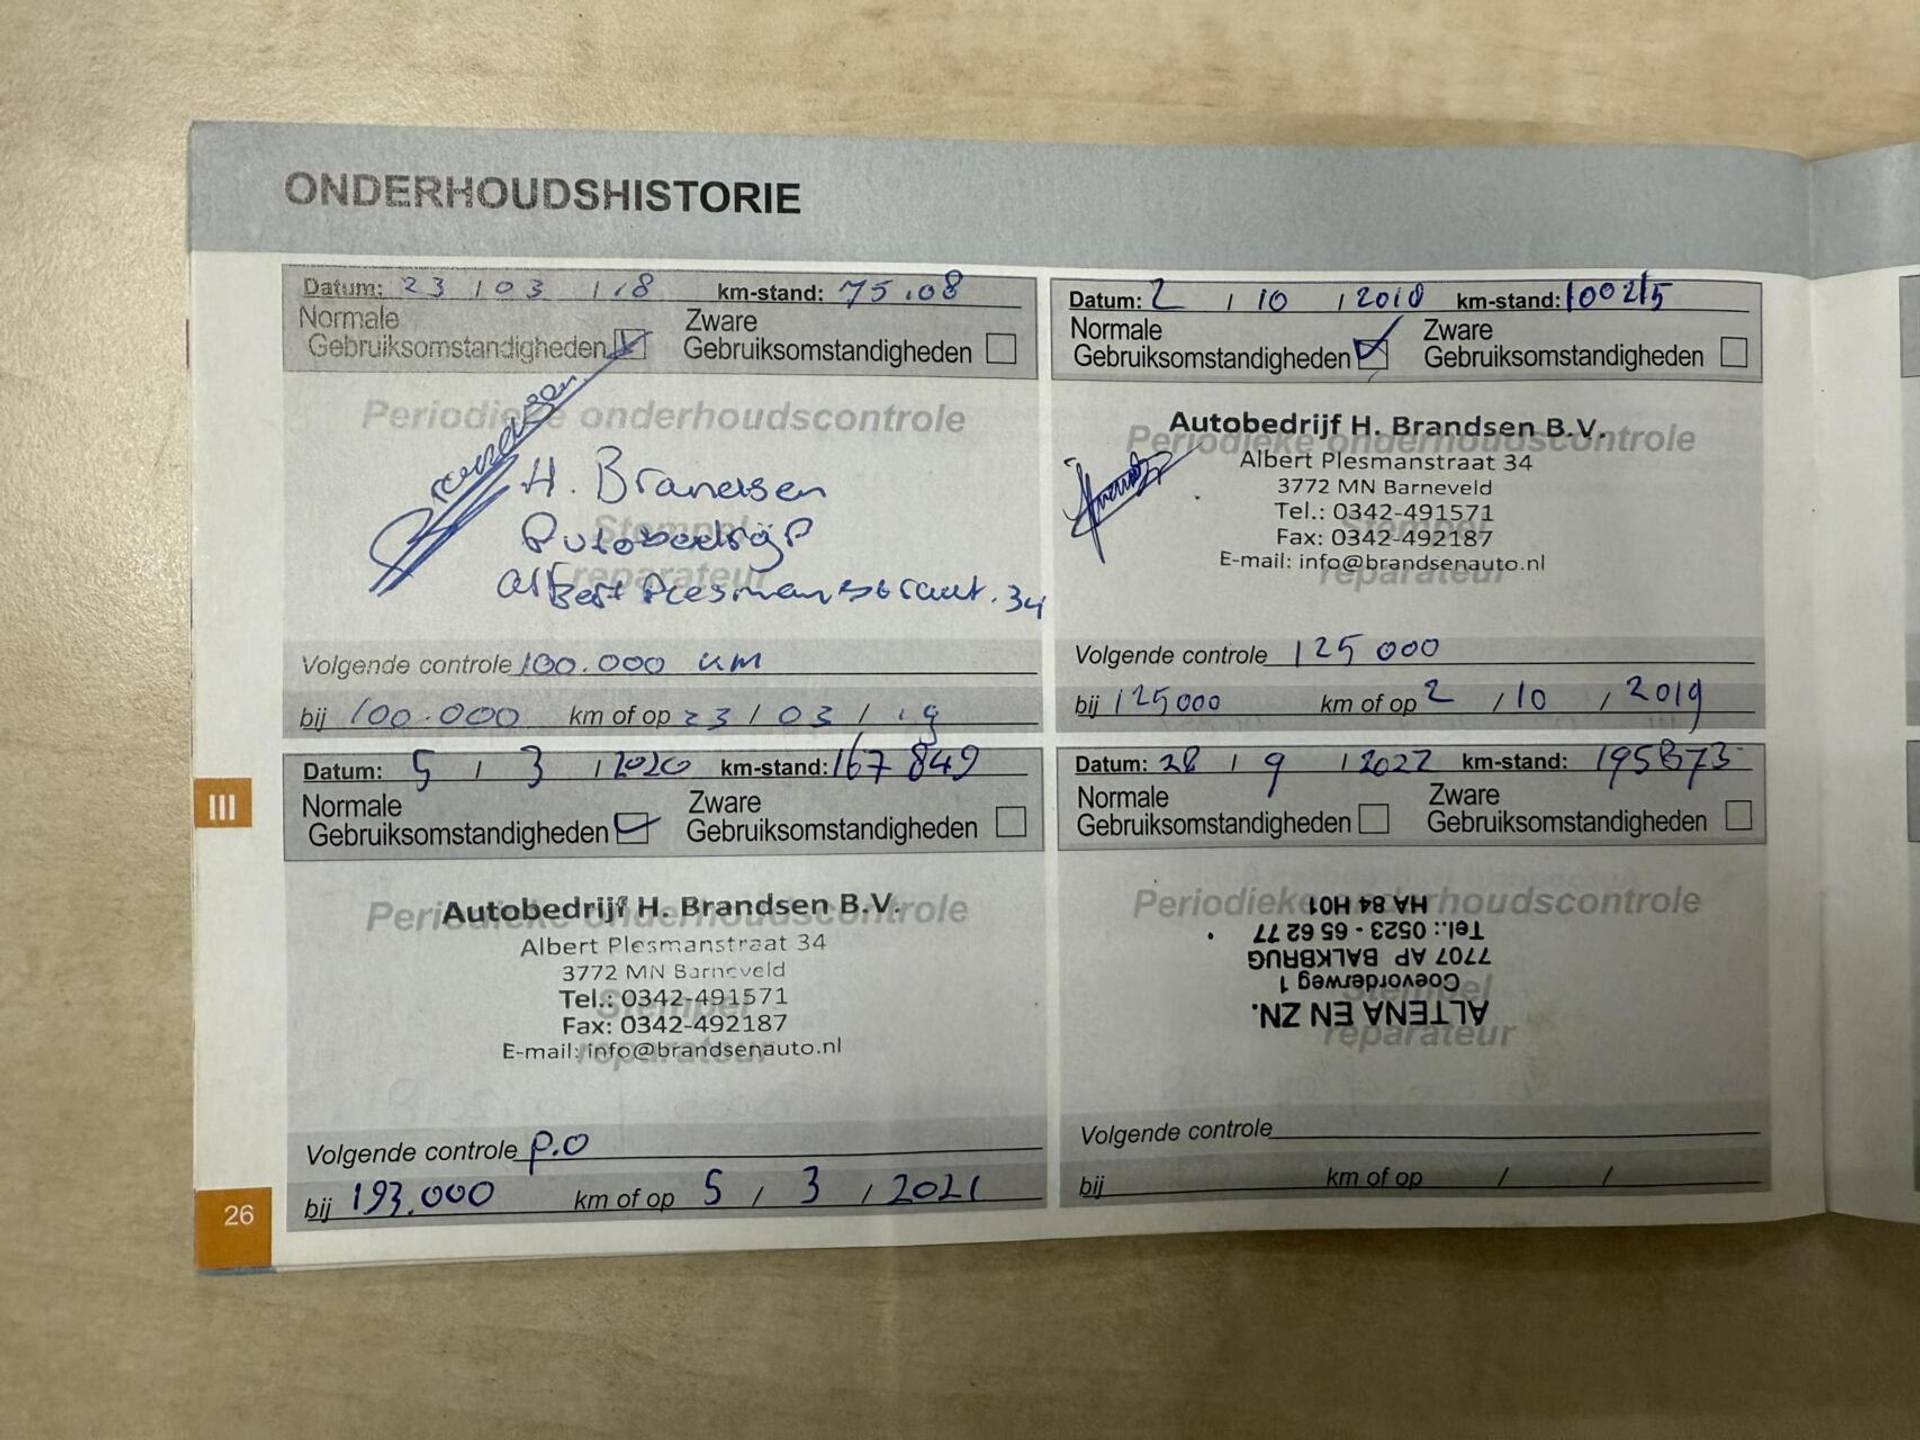 ONDERHOUDSHISTORIE
Datum: 23 / 03 / 18 km-stand: 75.08
Normale
Gebruiksomstandigheden
Zware
Gebruiksomstandigheden
Periodieke onderhoudscontrole
Stempel
reparateur
H. Brandsen
Autobedrijf
Albert Plesmanstraat. 34
Volgende controle 100.000 km
bij 100.000 km of op 23 / 03 / 19
Datum: 2 / 10 / 2018 km-stand: 100215
Normale
Gebruiksomstandigheden
Zware
Gebruiksomstandigheden
Periodieke onderhoudscontrole
Stempel
reparateur
Autobedrijf H. Brandsen B.V.
Albert Plesmanstraat 34
3772 MN Barneveld
Tel.: 0342-491571
Fax: 0342-492187
E-mail: info@brandsenauto.nl
Volgende controle 125 000
bij 125000 km of op 2 / 10 / 2019
Datum: 5 / 3 / 2020 km-stand: 167 849
Normale
Gebruiksomstandigheden
Zware
Gebruiksomstandigheden
Periodieke onderhoudscontrole
Stempel
reparateur
Autobedrijf H. Brandsen B.V.
Albert Plesmanstraat 34
3772 MN Barneveld
Tel.: 0342-491571
Fax: 0342-492187
E-mail: info@brandsenauto.nl
Volgende controle P.O
bij 193.000 km of op 5 / 3 / 2021
Datum: 28 / 9 / 2022 km-stand: 195873
Normale
Gebruiksomstandigheden
Zware
Gebruiksomstandigheden
Periodieke onderhoudscontrole
Stempel
reparateur
ALTENA EN ZN.
Coevorderweg 1
7707 AP BALKBRUG
Tel.: 0523 - 65 62 77
HA 84 H01
Volgende controle
bij km of op / /
III
26